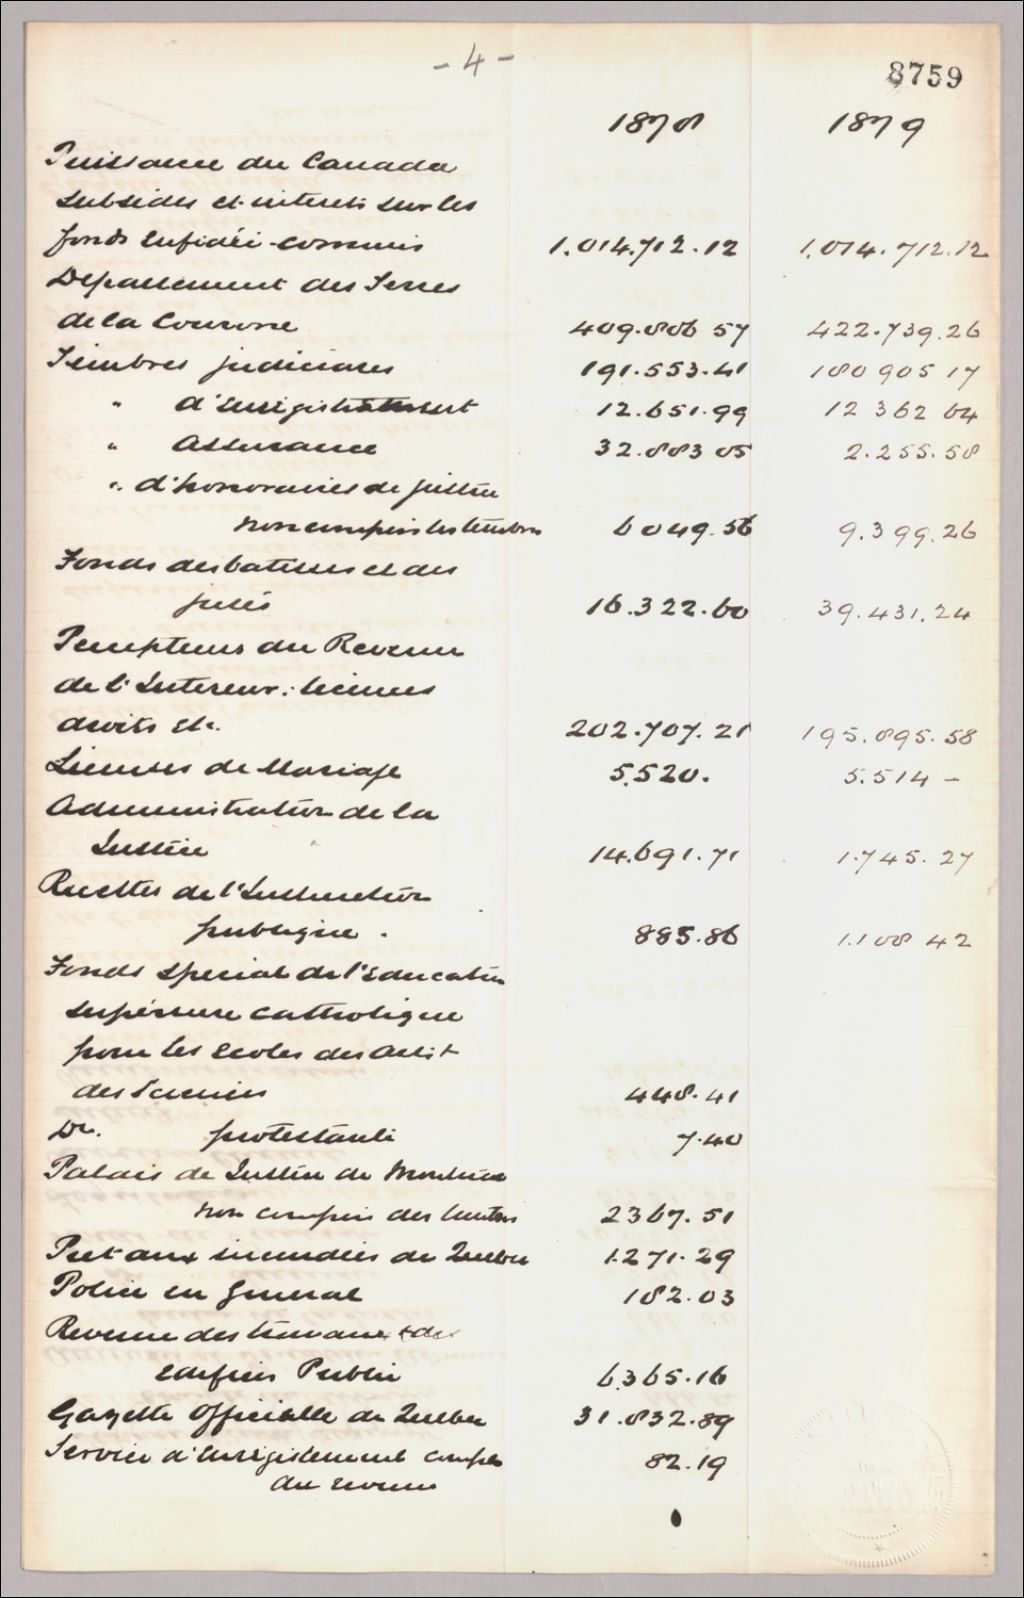 - 4 -
8759
1878 1879
Puissance du Canada
subsides et interets sur les
fonds en fidéi-commis 1.014.712.12 1.014.712.12
Département des Terres
de la Couronne 409.806 57 422.739.26
Timbres judiciaires 191.553.41 180 905 17
" d'Enregistrement 12.651.99 12 362 64
" Assurance 32.883 05 2.255.58
" d'honoraires de justice
non compris les timbres 6049.56 9.399.26
Fonds des batisses et des
jurés 16.322.60 39.431.24
Percepteurs du Revenu
de l'Interieur: licenses
droits Etc. 202.707.21 195.895.58
Licenses de Mariage 5.520. 5.514 -
Administration de la
Justice 14.691.71 1.745.27
Recettes de l'Instruction
publique. 885.86 1.108 42
Fonds special de l'Education
supérieure catholique
pour les Ecoles des Arts &
des Sciences 448.41
Do. protestante 7.40
Palais de Justice de Montréal
non compris des timbres 2367.51
Pret aux incendiés de Quebec 1.271.29
Police en General 182.03
Revenu des travaux & des
Edifices Publics 6.365.16
Gazette Officielle de Quebec 31.832.89
Service d'Enregistrement compte
du revenu 82.19